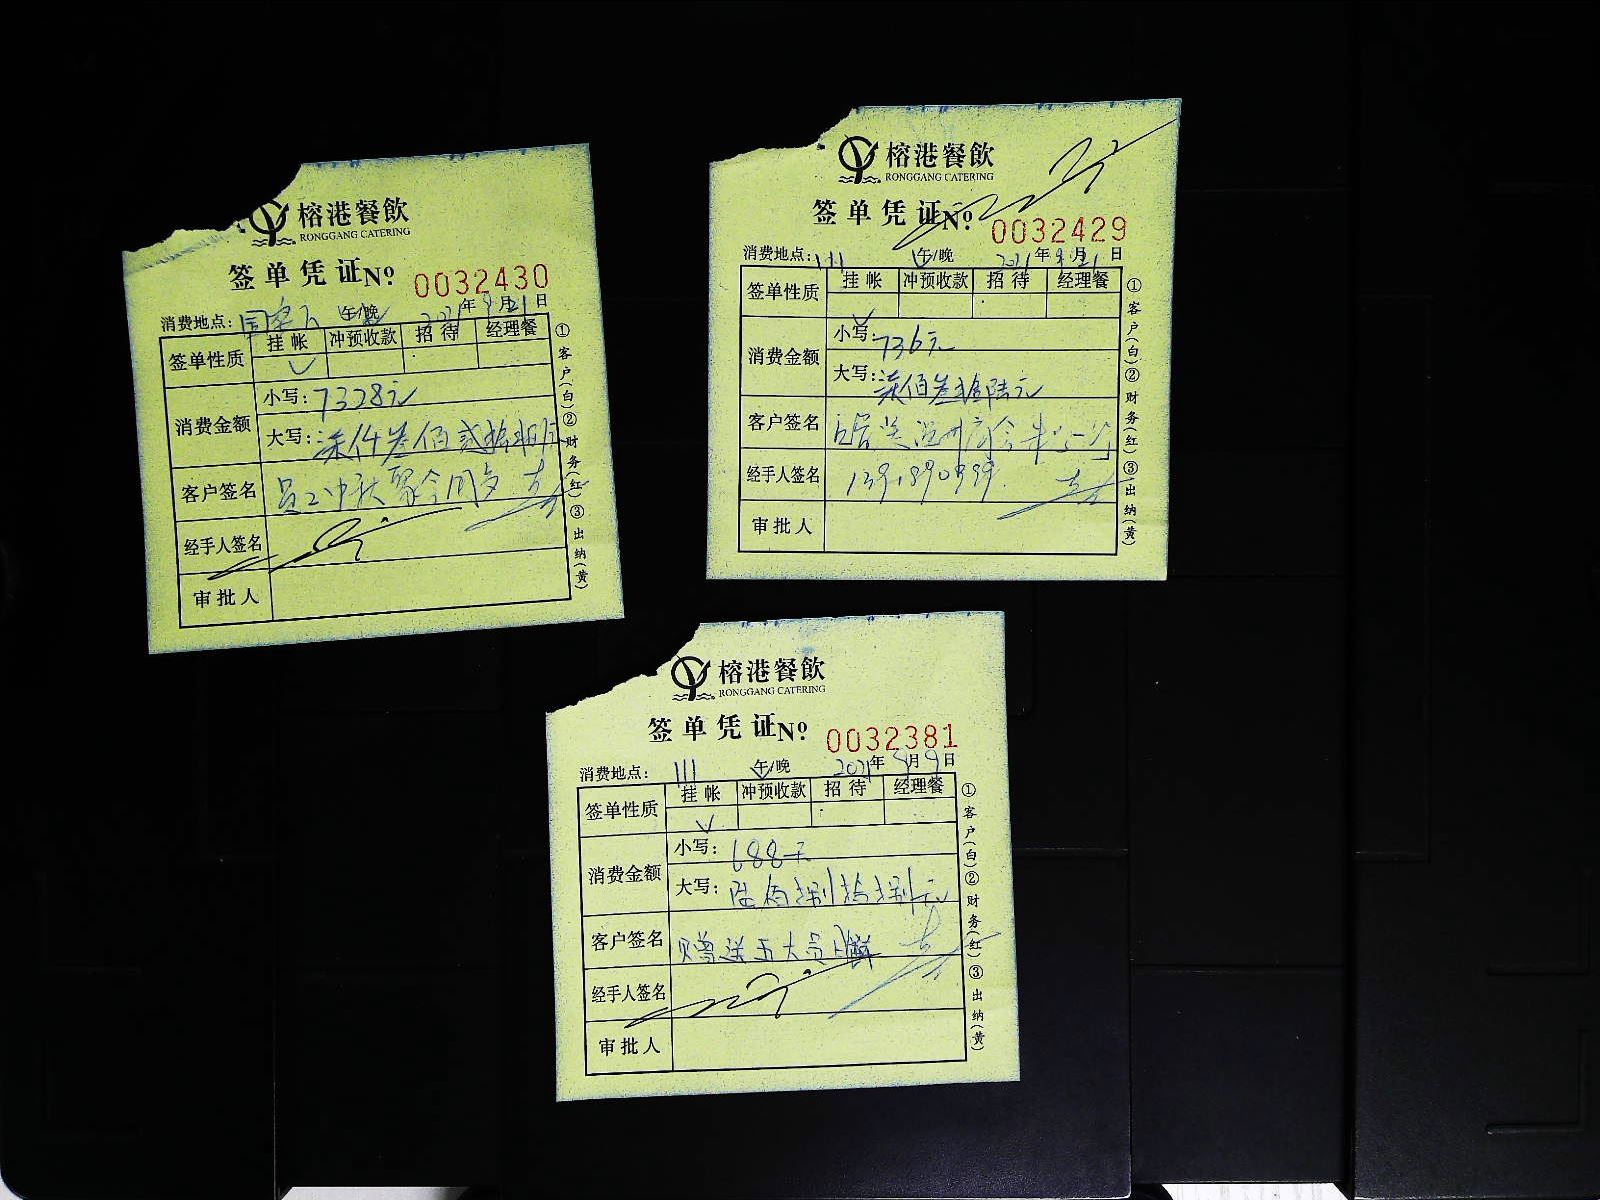 榕港餐飲
RONGGANG CATERING
签单凭证 No 0032430
消费地点: 午/晚 2021年9月21日
签单性质 挂帐 冲预收款 招待 经理餐
消费金额 小写: 7328元
大写: 柒仟叁佰贰拾捌元
客户签名 员工中秋聚会同乡
经手人签名
审批人
①客户(白)②财务(红)③出纳(黄)
榕港餐飲
RONGGANG CATERING
签单凭证 No 0032429
消费地点: 111 午/晚 2021年9月21日
签单性质 挂帐 冲预收款 招待 经理餐
消费金额 小写: 736元
大写: 柒佰叁拾陆元
客户签名
经手人签名
审批人
①客户(白)②财务(红)③出纳(黄)
榕港餐飲
RONGGANG CATERING
签单凭证 No 0032381
消费地点: 111 午/晚 2021年9月9日
签单性质 挂帐 冲预收款 招待 经理餐
消费金额 小写: 688元
大写: 陆佰捌拾捌元
客户签名 赠送五大员
经手人签名
审批人
①客户(白)②财务(红)③出纳(黄)